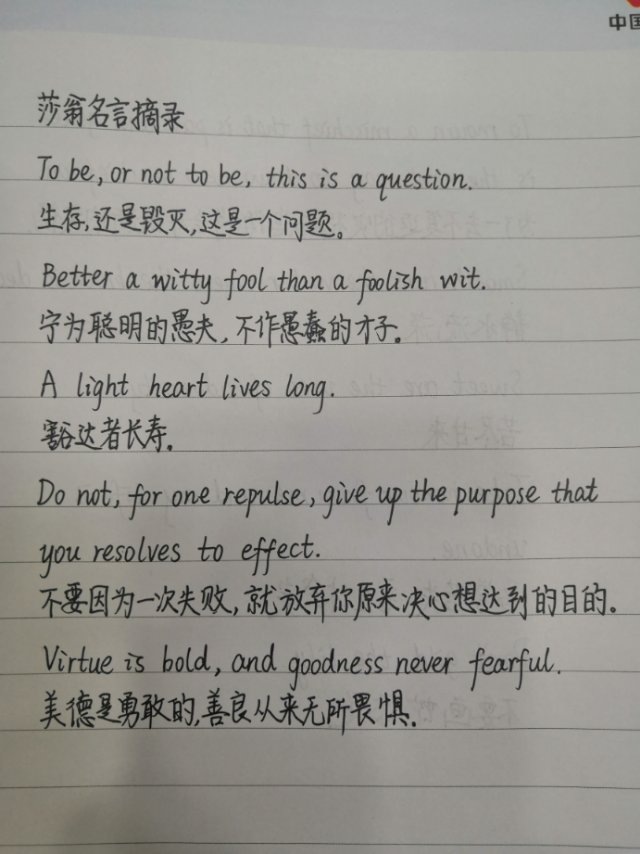 中国
莎翁名言摘录
To be, or not to be, this is a question.
生存,还是毁灭,这是一个问题。
Better a witty fool than a foolish wit.
宁为聪明的愚夫,不作愚蠢的才子。
A light heart lives long.
豁达者长寿。
Do not, for one repulse, give up the purpose that
you resolves to effect.
不要因为一次失败,就放弃你原来决心想达到的目的。
Virtue is bold, and goodness never fearful.
美德是勇敢的,善良从来无所畏惧.